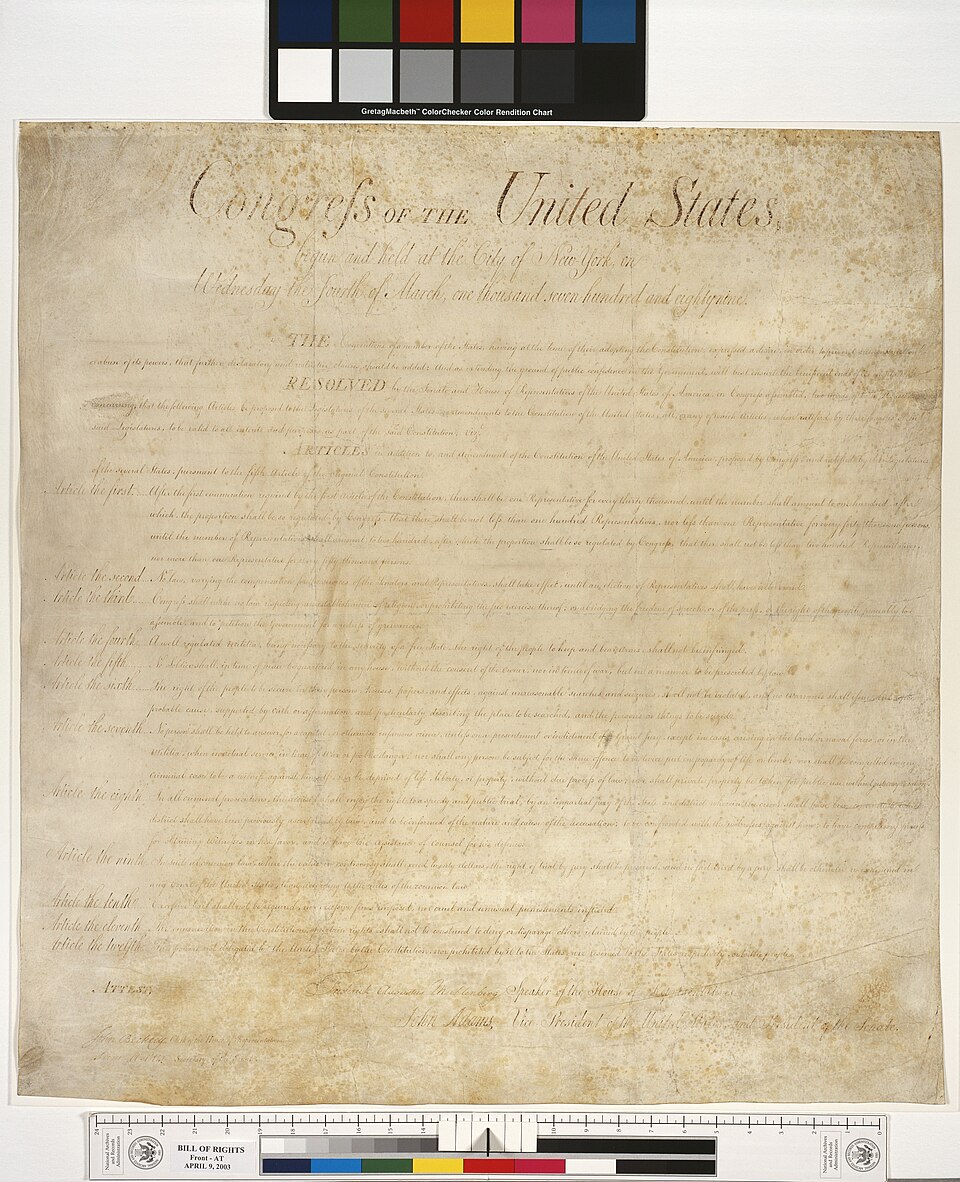 GretagMacbeth™ ColorChecker Color Rendition Chart
Congreſs OF THE United States,
begun and held at the City of New York, on
Wednesday the fourth of March, one thousand seven hundred and eighty nine.
THE Conventions of a number of the States, having at the time of their adopting the Constitution, expressed a desire, in order to prevent
or abuse of its powers, that further declaratory and restrictive clauses should be added: And as extending the ground of public confidence in the Government, will best ensure the beneficent ends of its
RESOLVED by the Senate and House of Representatives of the United States of America, in Congress assembled, two thirds of both Houses
concurring, that the following Articles be proposed to the Legislatures of the several States, as amendments to the Constitution of the United States, all, or any of which Articles, when ratified by three fourths of the
said Legislatures, to be valid to all intents and purposes, as part of the said Constitution; viz.
ARTICLES in addition to, and amendment of the Constitution of the United States of America, proposed by Congress, and ratified by the Legislatures
of the several States, pursuant to the fifth Article of the original Constitution.
Article the first. After the first enumeration required by the first Article of the Constitution, there shall be one Representative for every thirty thousand, until the number shall amount to one hundred, after
which, the proportion shall be so regulated by Congress, that there shall be not leſs than one hundred Representatives, nor leſs than one Representative for every forty thousand persons,
until the number of Representatives shall amount to two hundred, after which the proportion shall be so regulated by Congress, that there shall not be leſs than two hundred Representatives,
nor more than one Representative for every fifty thousand persons.
Article the second. No law, varying the compensation for the services of the Senators and Representatives, shall take effect, until an election of Representatives shall have intervened.
Article the third. Congress shall make no law respecting an establishment of religion, or prohibiting the free exercise thereof; or abridging the freedom of speech, or of the press; or the right of the people peaceably to
assemble, and to petition the Government for a redress of grievances.
Article the fourth. A well regulated Militia, being necessary to the security of a free State, the right of the people to keep and bear Arms, shall not be infringed.
Article the fifth. No Soldier shall, in time of peace be quartered in any house, without the consent of the Owner, nor in time of war, but in a manner to be prescribed by law.
Article the sixth. The right of the people to be secure in their persons, houses, papers, and effects, against unreasonable searches and seizures, shall not be violated, and no Warrants shall issue, but upon
probable cause, supported by Oath or affirmation, and particularly describing the place to be searched, and the persons or things to be seized.
Article the seventh. No person shall be held to answer for a capital, or otherwise infamous crime, unless on a presentment or indictment of a Grand Jury, except in cases arising in the land or naval forces, or in the
Militia, when in actual service in time of War or public danger; nor shall any person be subject for the same offence to be twice put in jeopardy of life or limb, nor shall be compelled in any
criminal case to be a witness against himself, nor be deprived of life, liberty, or property, without due process of law; nor shall private property be taken for public use, without just compensation.
Article the eighth. In all criminal prosecutions, the accused shall enjoy the right to a speedy and public trial, by an impartial jury of the State and district wherein the crime shall have been committed, which
district shall have been previously ascertained by law, and to be informed of the nature and cause of the accusation; to be confronted with the witnesses against him; to have compulsory process
for obtaining witnesses in his favor, and to have the assistance of counsel for his defence.
Article the ninth. In suits at common law, where the value in controversy shall exceed twenty dollars, the right of trial by jury shall be preserved, and no fact tried by a jury, shall be otherwise re-examined in
any Court of the United States, than according to the rules of the common law.
Article the tenth. Excessive bail shall not be required, nor excessive fines imposed, nor cruel and unusual punishments inflicted.
Article the eleventh. The enumeration in the Constitution, of certain rights, shall not be construed to deny or disparage others retained by the people.
Article the twelfth. The powers not delegated to the United States by the Constitution, nor prohibited by it to the States, are reserved to the States respectively, or to the people.
ATTEST,
Frederick Augustus Muhlenberg Speaker of the House of Representatives
John Adams, Vice President of the United States, and President of the Senate.
John Beckley, Clerk of the House of Representatives.
Sam. A. Otis Secretary of the Senate.
24 23 22 21 20 19 18 17 16 15 14 10 9 8 7 6 5 4 3 2 1 0
National Archives and Records Administration
BILL OF RIGHTS
Front - AT
APRIL 9, 2003
National Archives and Records Administration